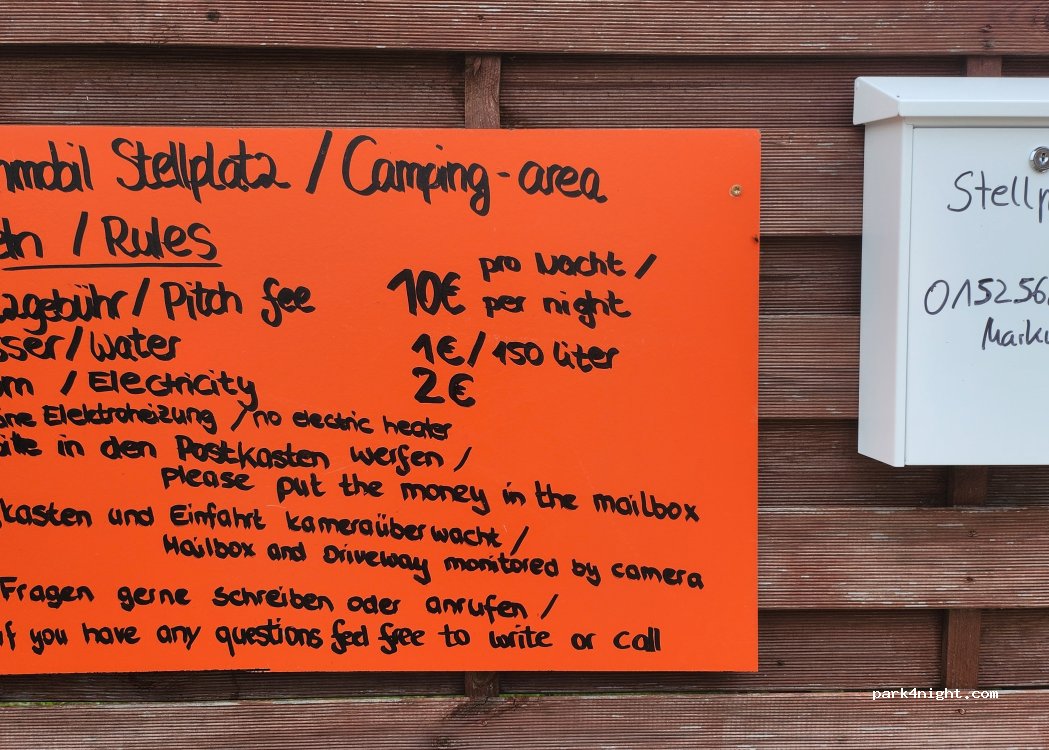 nmobil Stellplatz / Camping-area
eln / Rules
zgebühr / Pitch fee 10€ pro Nacht / per night
sser / Water 1€ / 150 liter
om / Electricity 2€
ine Elektroheizung / no electric heater
in den Postkasten werfen /
please put the money in the mailbox
kasten und Einfahrt kameraüberwacht /
Mailbox and Driveway monitored by camera
Fragen gerne schreiben oder anrufen /
if you have any questions feel free to write or call
Stellp
015256
Marku
park4night.com